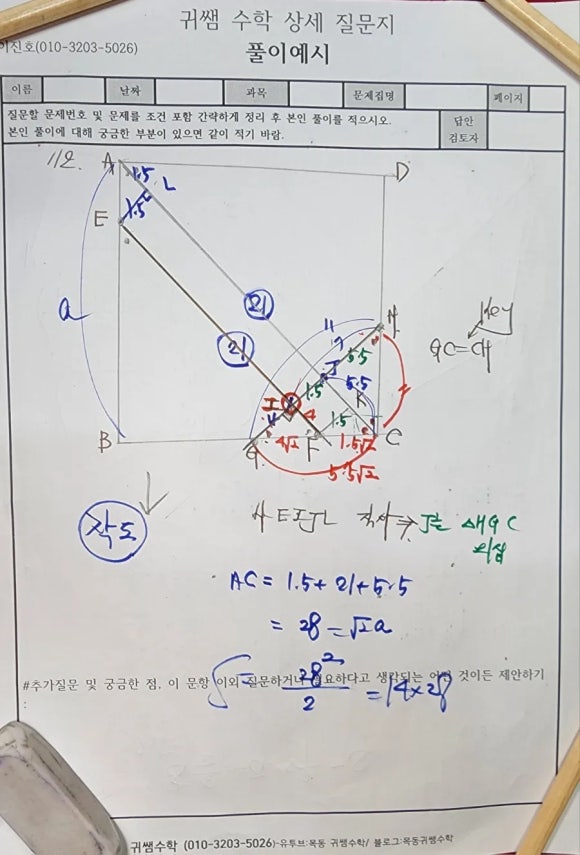 귀쌤 수학 상세 질문지
이진호(010-3203-5026)
풀이예시
이름 날짜 과목 문제집명 페이지
질문할 문제번호 및 문제를 조건 포함 간략하게 정리 후 본인 풀이를 적으시오.
본인 풀이에 대해 궁금한 부분이 있으면 같이 적기 바람.
답안
검토자
112.
A 1.5 L D
E 1.5
a
21
21
11 7 H
Key
GC=CH
5.5
J
1.5 5.5
I K
4 4 1.5
B G 4√2 F 1.5√2 C
5.5√2
작도
EIJL 직사 ⇒ J는 △HGC
외심
AC = 1.5 + 21 + 5.5
= 28 = √2a
S = 28²/2 = 14×28
#추가질문 및 궁금한 점, 이 문항 이외 질문하거나 필요하다고 생각되는 어떤 것이든 제안하기
:
귀쌤수학 (010-3203-5026)-유투브:목동 귀쌤수학/ 블로그:목동귀쌤수학